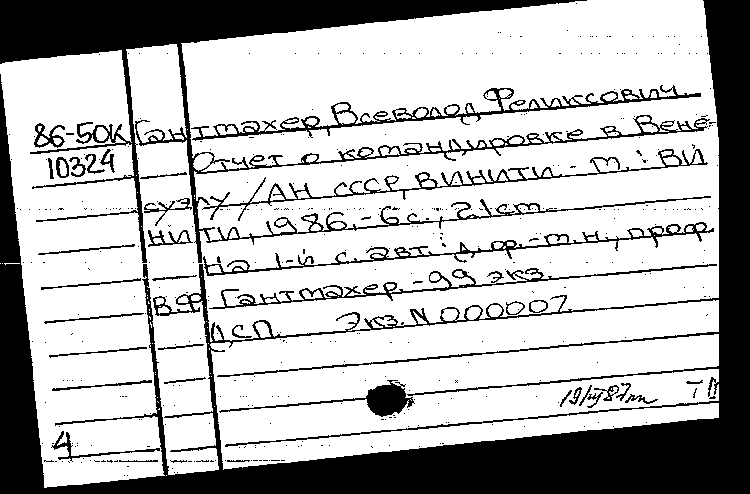 86-50К Гантмахер, Всеволод Феликсович.
10324 Отчет о командировке в Вене-
суэлу / АН СССР, ВИНИТИ. - М. : ВИ
НИТИ, 1986. - 6 с.; 21 cm.
На 1-й с. авт.: д. ф.-м. н., проф.
В.Ф. Гантмахер. - 99 экз.
ДСП. Экз. N 000007.
19/III 87
4